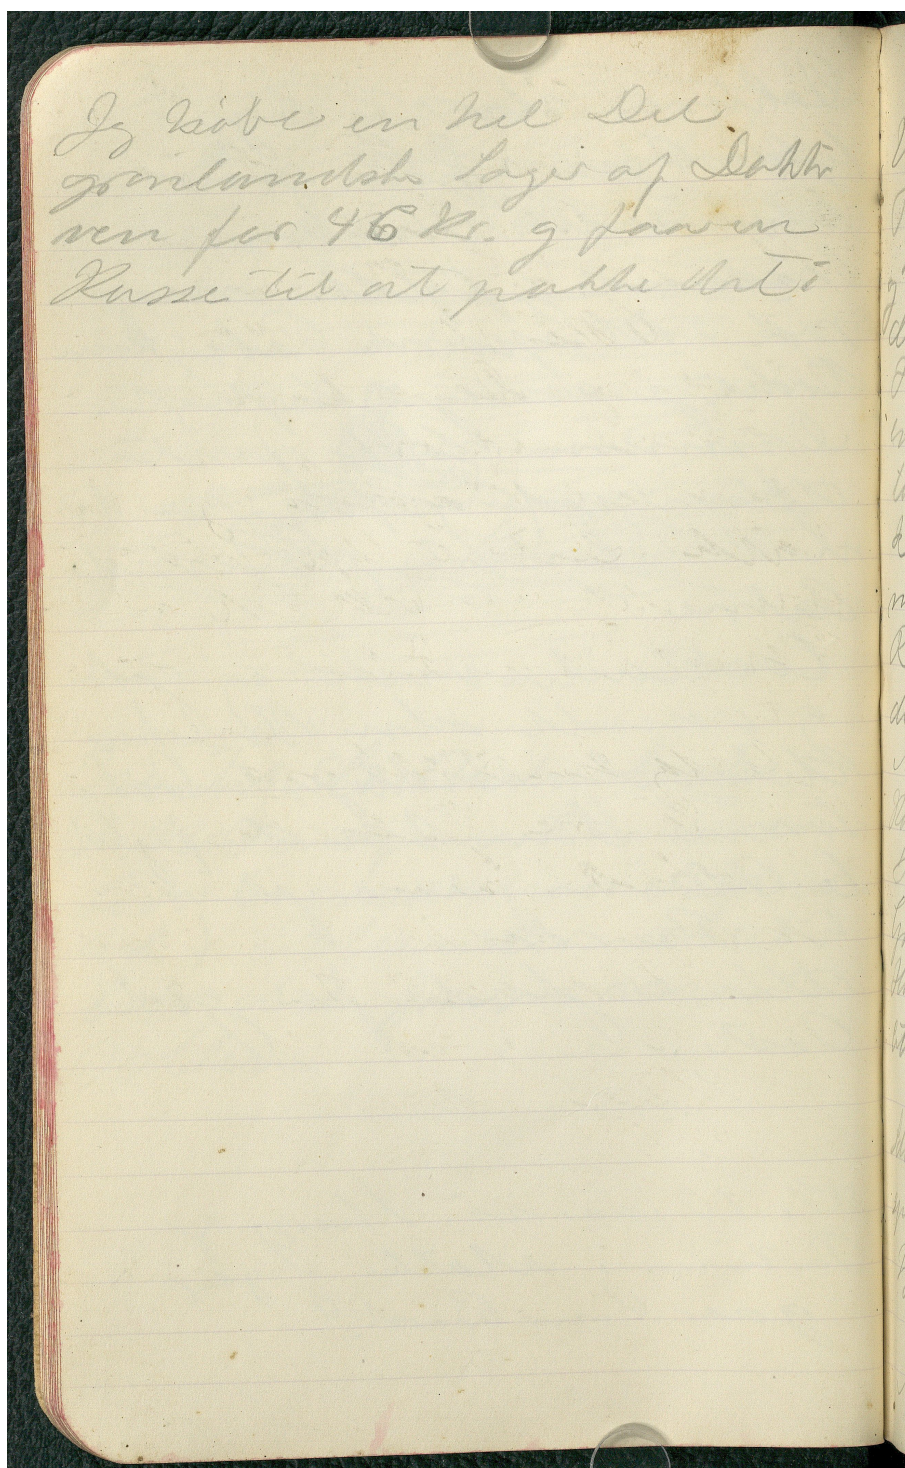 Jeg køber en hel Del
grønlandske Sager af Dokto
ren for 46 Kr. og faar en
Kasse til at pakke det i